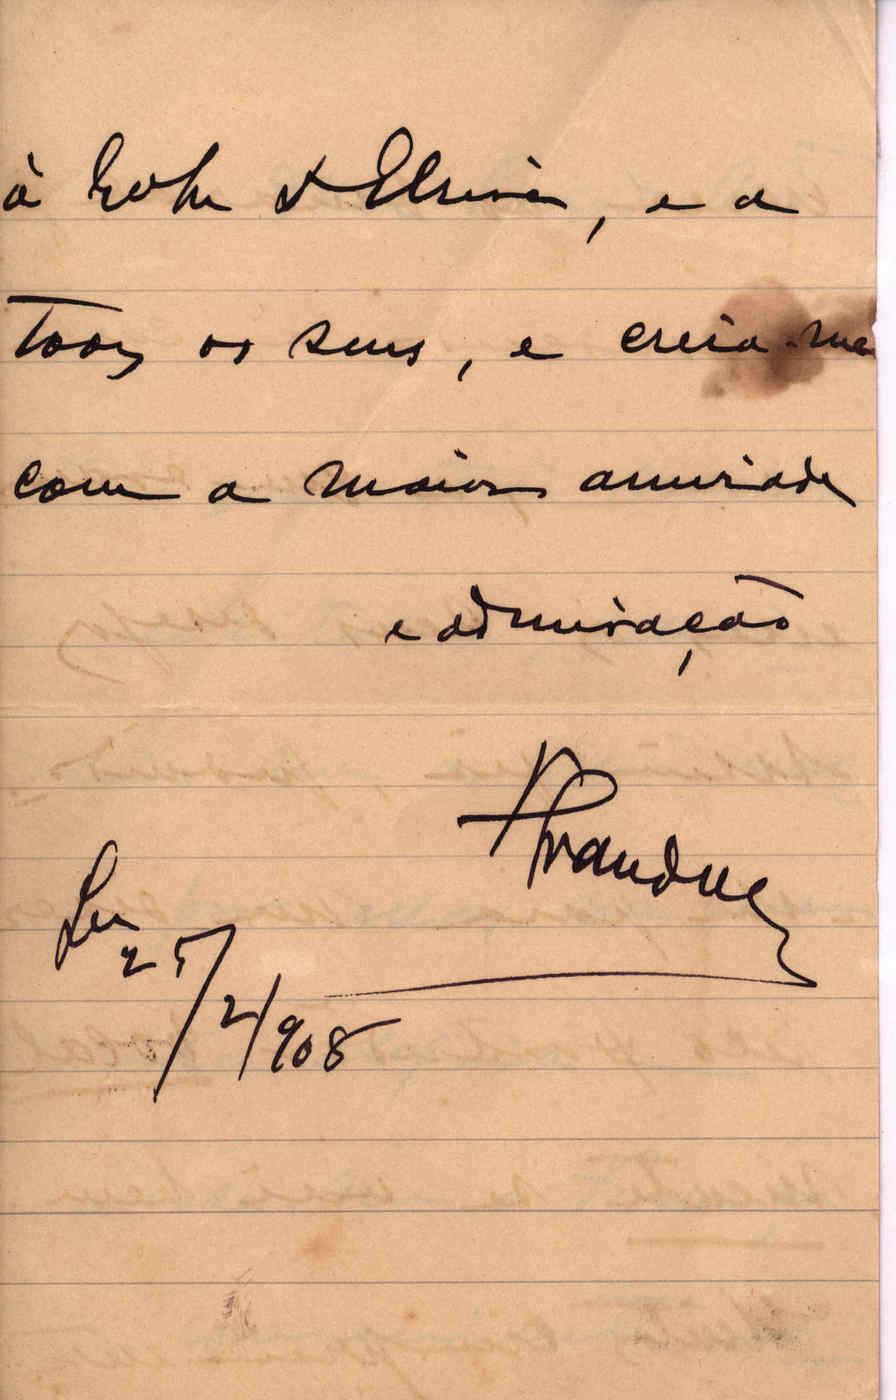 à Exma D. Elvira, e a
todos os seus, e creia-me
com a maior amizade
e admiração
25/2/908